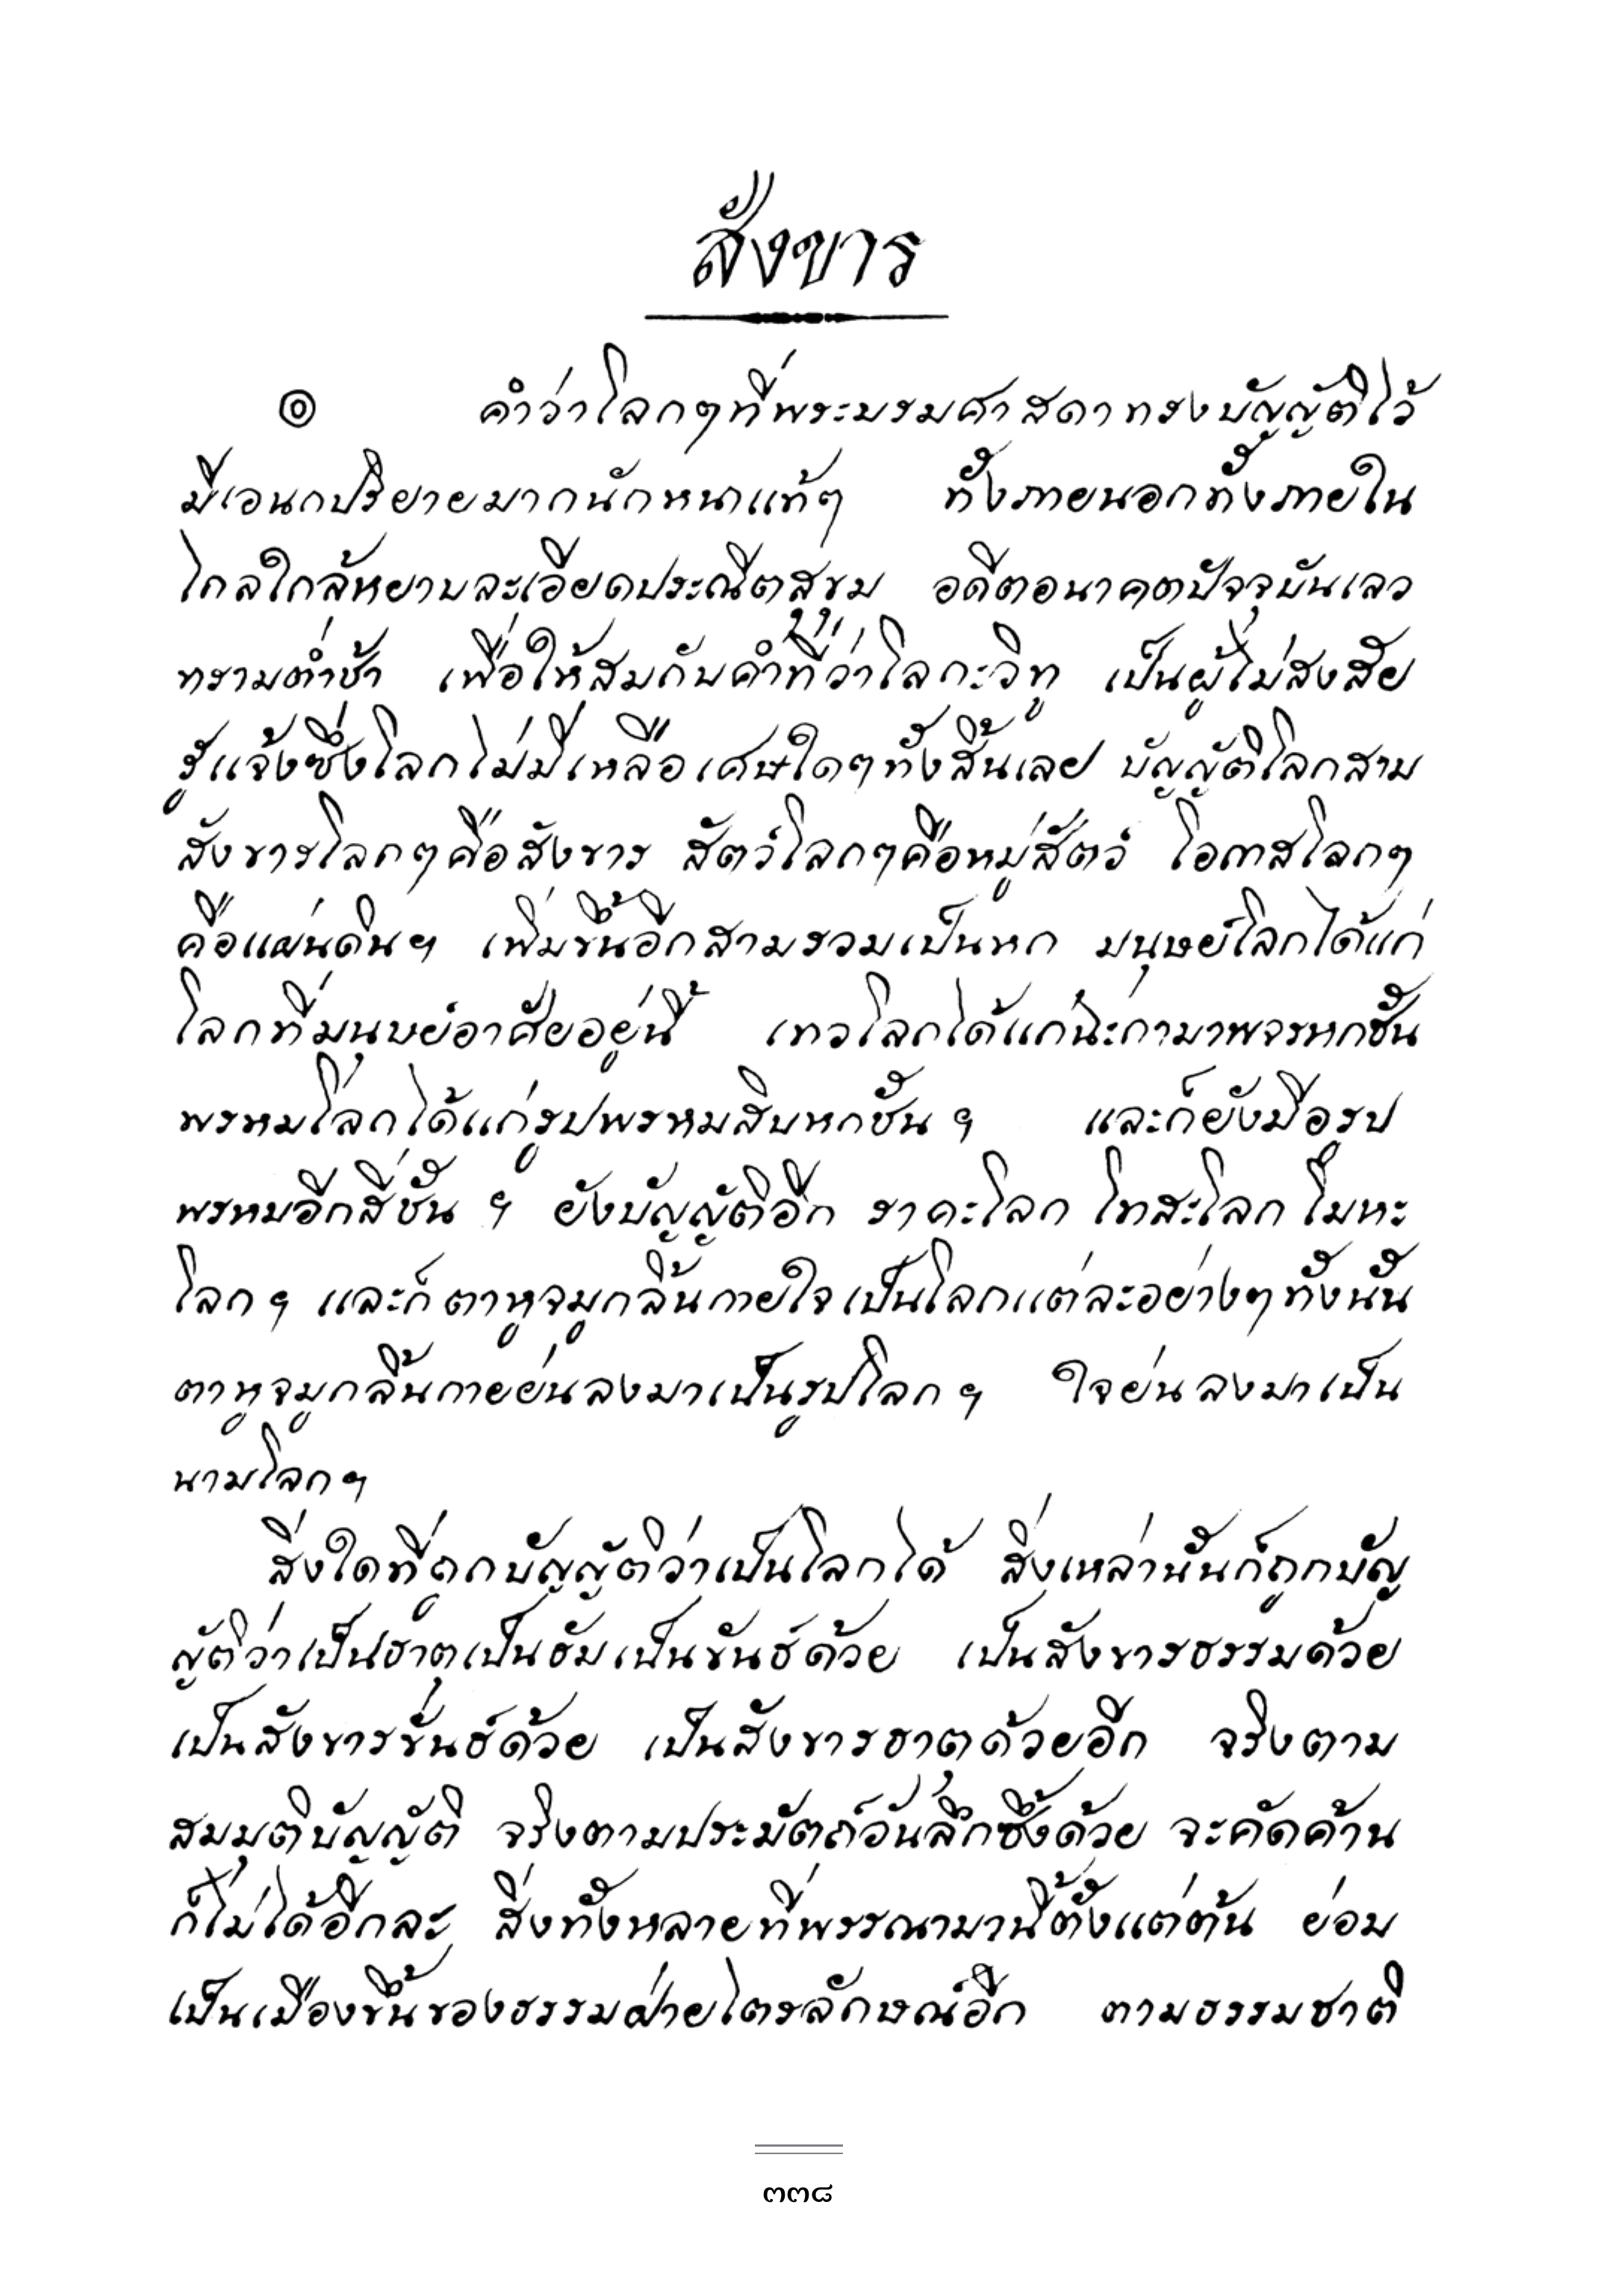 สังขาร
๏ คำว่าโลกๆที่พระบรมศาสดาทรงบัญญัติไว้
มีเอนกปริยายมากนักหนาแท้ๆ ทั้งภายนอกทั้งภายใน
ไกลใกล้หยาบละเอียดประณีตสุขุม อดีตอนาคตปัจจุบันเลว
ทรามต่ำช้า เพื่อให้สมกับคำที่ว่าโลกะวิทู เป็นผู้ไม่สงสัย
รู้แจ้งซึ่งโลกไม่มีเหลือเศษใดๆทั้งสิ้นเลย บัญญัติโลกสาม
สังขารโลกๆคือสังขาร สัตว์โลกๆคือหมู่สัตว์ โอกาสโลกๆ
คือแผ่นดินฯ เพิ่มขึ้นอีกสามรวมเป็นหก มนุษย์โลกได้แก่
โลกที่มนุษย์อาศัยอยู่นี้ เทวโลกได้แก่ฉะกามาพจรหกชั้น
พรหมโลกได้แก่รูปพรหมสิบหกชั้น ฯ และก็ยังมีอรูป
พรหมอีกสี่ชั้น ฯ ยังบัญญัติอีก ราคะโลก โทสะโลก โมหะ
โลก ฯ และก็ ตาหูจมูกลิ้นกายใจเป็นโลกแต่ละอย่างๆทั้งนั้น
ตาหูจมูกลิ้นกายย่นลงมาเป็นรูปโลก ฯ ใจย่นลงมาเป็น
นามโลกฯ
สิ่งใดที่ถูกบัญญัติว่าเป็นโลกได้ สิ่งเหล่านั้นก็ถูกบัญ
ญัติว่าเป็นธาตุเป็นธัมเป็นขันธ์ด้วย เป็นสังขารธรรมด้วย
เป็นสังขารขันธ์ด้วย เป็นสังขารธาตุด้วยอีก จริงตาม
สมมุติบัญญัติ จริงตามประมัตถ์อันลึกซึ้งด้วย จะคัดค้าน
ก็ไม่ได้อีกละ สิ่งทั้งหลายที่พรรณามานี้ตั้งแต่ต้น ย่อม
เป็นเมืองขึ้นของธรรมฝ่ายไตรลักษณ์อีก ตามธรรมชาติ
๓๓๘